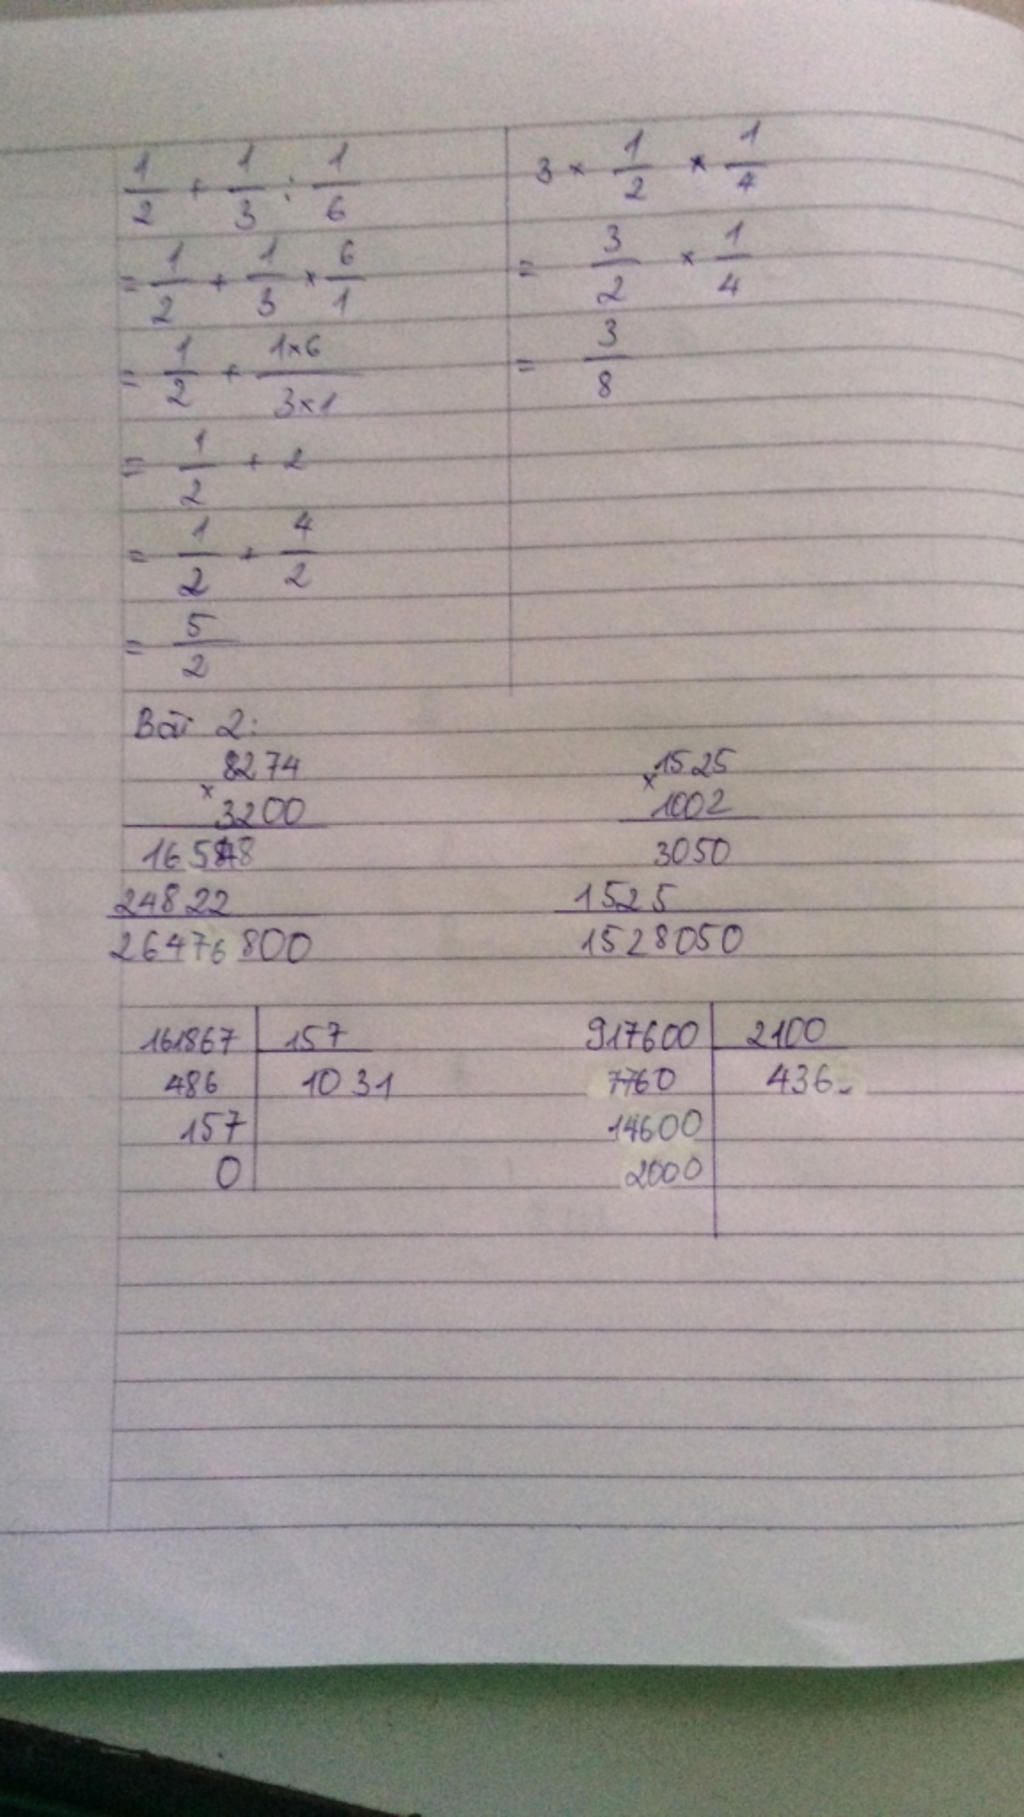 1/2 + 1/3 : 1/6
= 1/2 + 1/3 × 6/1
= 1/2 + 1×6/3×1
= 1/2 + 2
= 1/2 + 4/2
= 5/2
3 × 1/2 × 1/4
= 3/2 × 1/4
= 3/8
Bài 2:
8274
×
3200
16548
24822
26476800
1525
×
1002
3050
1525
1528050
161867 157
486 1031
157
0
917600 2100
7760 436
14600
2000